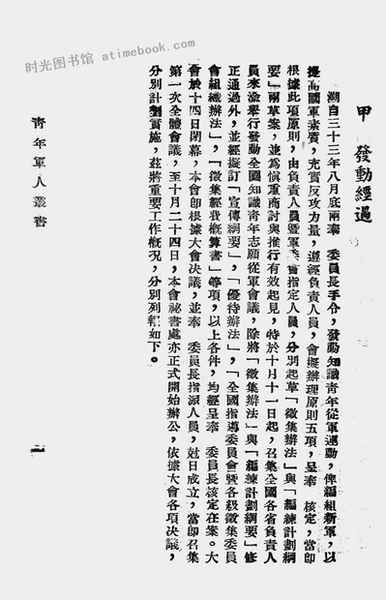 时光图书馆 atimebook.com
甲 發動經過
溯自三十三年八月底兩奉 委員長手令，發動知識青年從軍運動，俾編組新軍，以
提高國軍素質，充實反攻力量，遵經負責人員，會擬辦理原則五項，呈奉 核定，當即
根據此項原則，由負責人員暨軍委會指定人員，分別起草「徵集辦法」與「編練計劃綱
要」兩草案，並為愼重商討與推行有效起見，特於十月十一日起，召集全國各省負責人
員來渝舉行發動全國知識青年志願從軍會議，除將「徵集辦法」與「編練計劃綱要」修
正通過外，並經擬訂「宣傳綱要」，「優待辦法」，「全國指導委員會暨各級徵集委員
會組織辦法」，「徵集經我概算書」等項，以上各件，均經呈奉 委員長核定在案。大
會於十四日閉幕，本會即根據大會決議，並奉 委員長指派人員，尅日成立，當即召集
第一次全體會議，至十月二十四日，本會祕書處亦正式開始辦公，依據大會各項決議，
分別計劃實施，茲將重要工作概況，分別列經如下。
青年軍人叢書
一